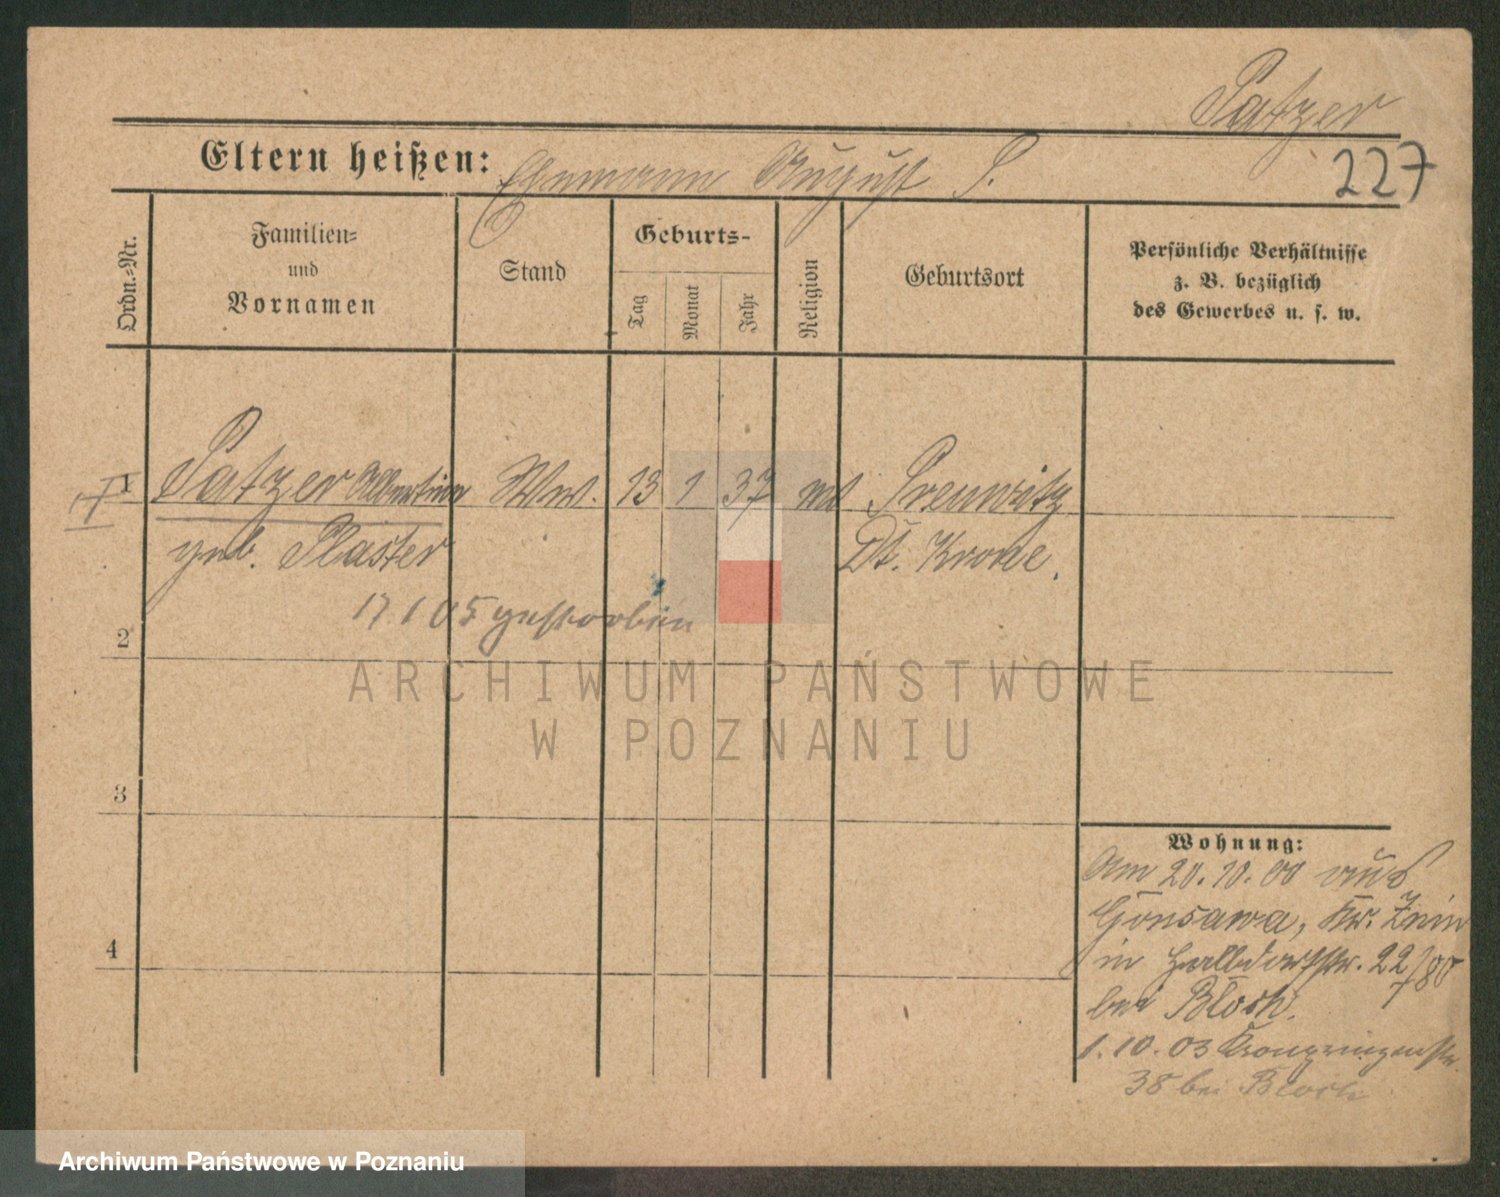 Patzer
Eltern heißen: Ehemann August P.
227
Ordn.-Nr.
Familien-
und
Vornamen
Stand
Geburts-
Tag
Monat
Jahr
Religion
Geburtsort
Persönliche Verhältnisse
z. B. bezüglich
des Gewerbes u. s. w.
1 Patzer Albertine Ww. 13 1 37
geb. Plaster Dt. Krone.
17 1 05 gestorben
2
ARCHIWUM PAŃSTWOWE
W POZNANIU
3
Wohnung:
Am 20.10.00 aus
Gonsawa, Kr. Znin
in Halbdorfstr. 22
bei Bloch.
1.10.03 Kronprinzenstr.
38 bei Bloch
4
Archiwum Państwowe w Poznaniu